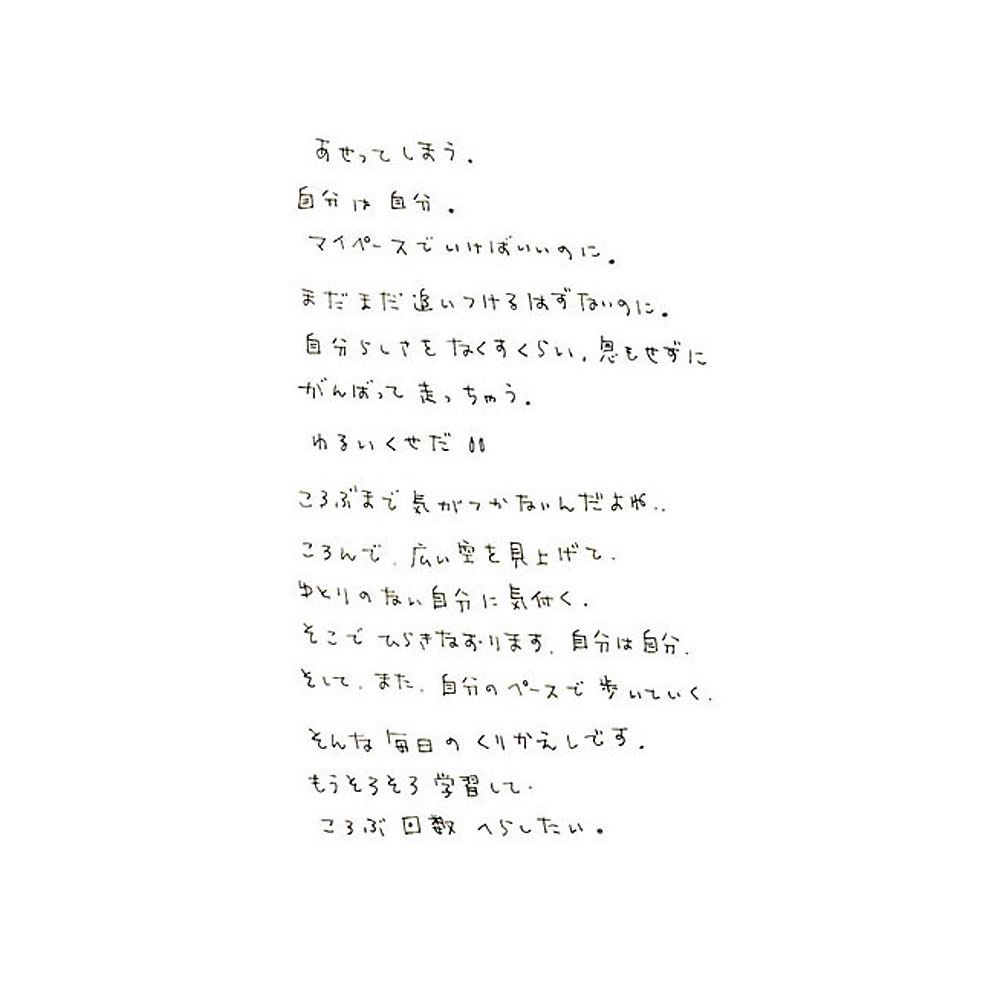 あせってしまう.
自分は自分.
マイペースでいけばいいのに.
まだまだ追いつけるはずないのに.
自分らしさをなくすくらい,息もせずに
がんばって走っちゃう.
わるいくせだ
ころぶまで気がつかないんだよね..
ころんで,広い空を見上げて.
ゆとりのない自分に気付く.
そこでひらきなおります,自分は自分.
そして,また,自分のペースで歩いていく.
そんな毎日のくりかえしです.
もうそろそろ学習して.
ころぶ回数へらしたい.